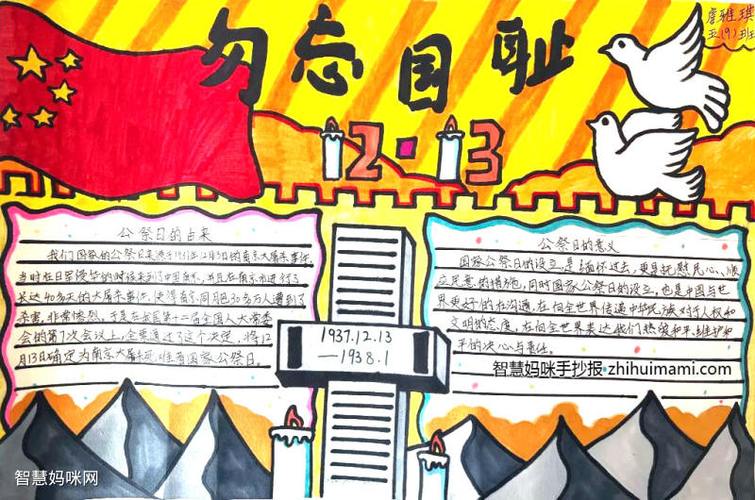 勿忘国耻
12·13
五(9)班
公祭日的由来
我们国家的公祭日来源于1937年12月13日的南京大屠杀事件,
当时在日军侵华的时候来到了中国南京,并且在南京市进行了
长达40多天的大屠杀事件,使得南京同胞30多万人遭到了
杀害,非常惨烈,于是在我国第十二届全国人大常委
会的第7次会议上,全票通过了这个决定,将12
月13日确定为南京大屠杀死难者国家公祭日。
1937.12.13
—1938.1
公祭日的意义
国家公祭日的设立,是缅怀过去,更是抚慰民心、顺
应民意的措施,同时国家公祭日的设立,也是中国与世
界更好的在沟通,在向全世界传递中华民族对于人权和
文明的态度,在向全世界表达我们热爱和平,维护和
平的决心与责任。
智慧妈咪手抄报·zhihuimami.com
智慧妈咪网